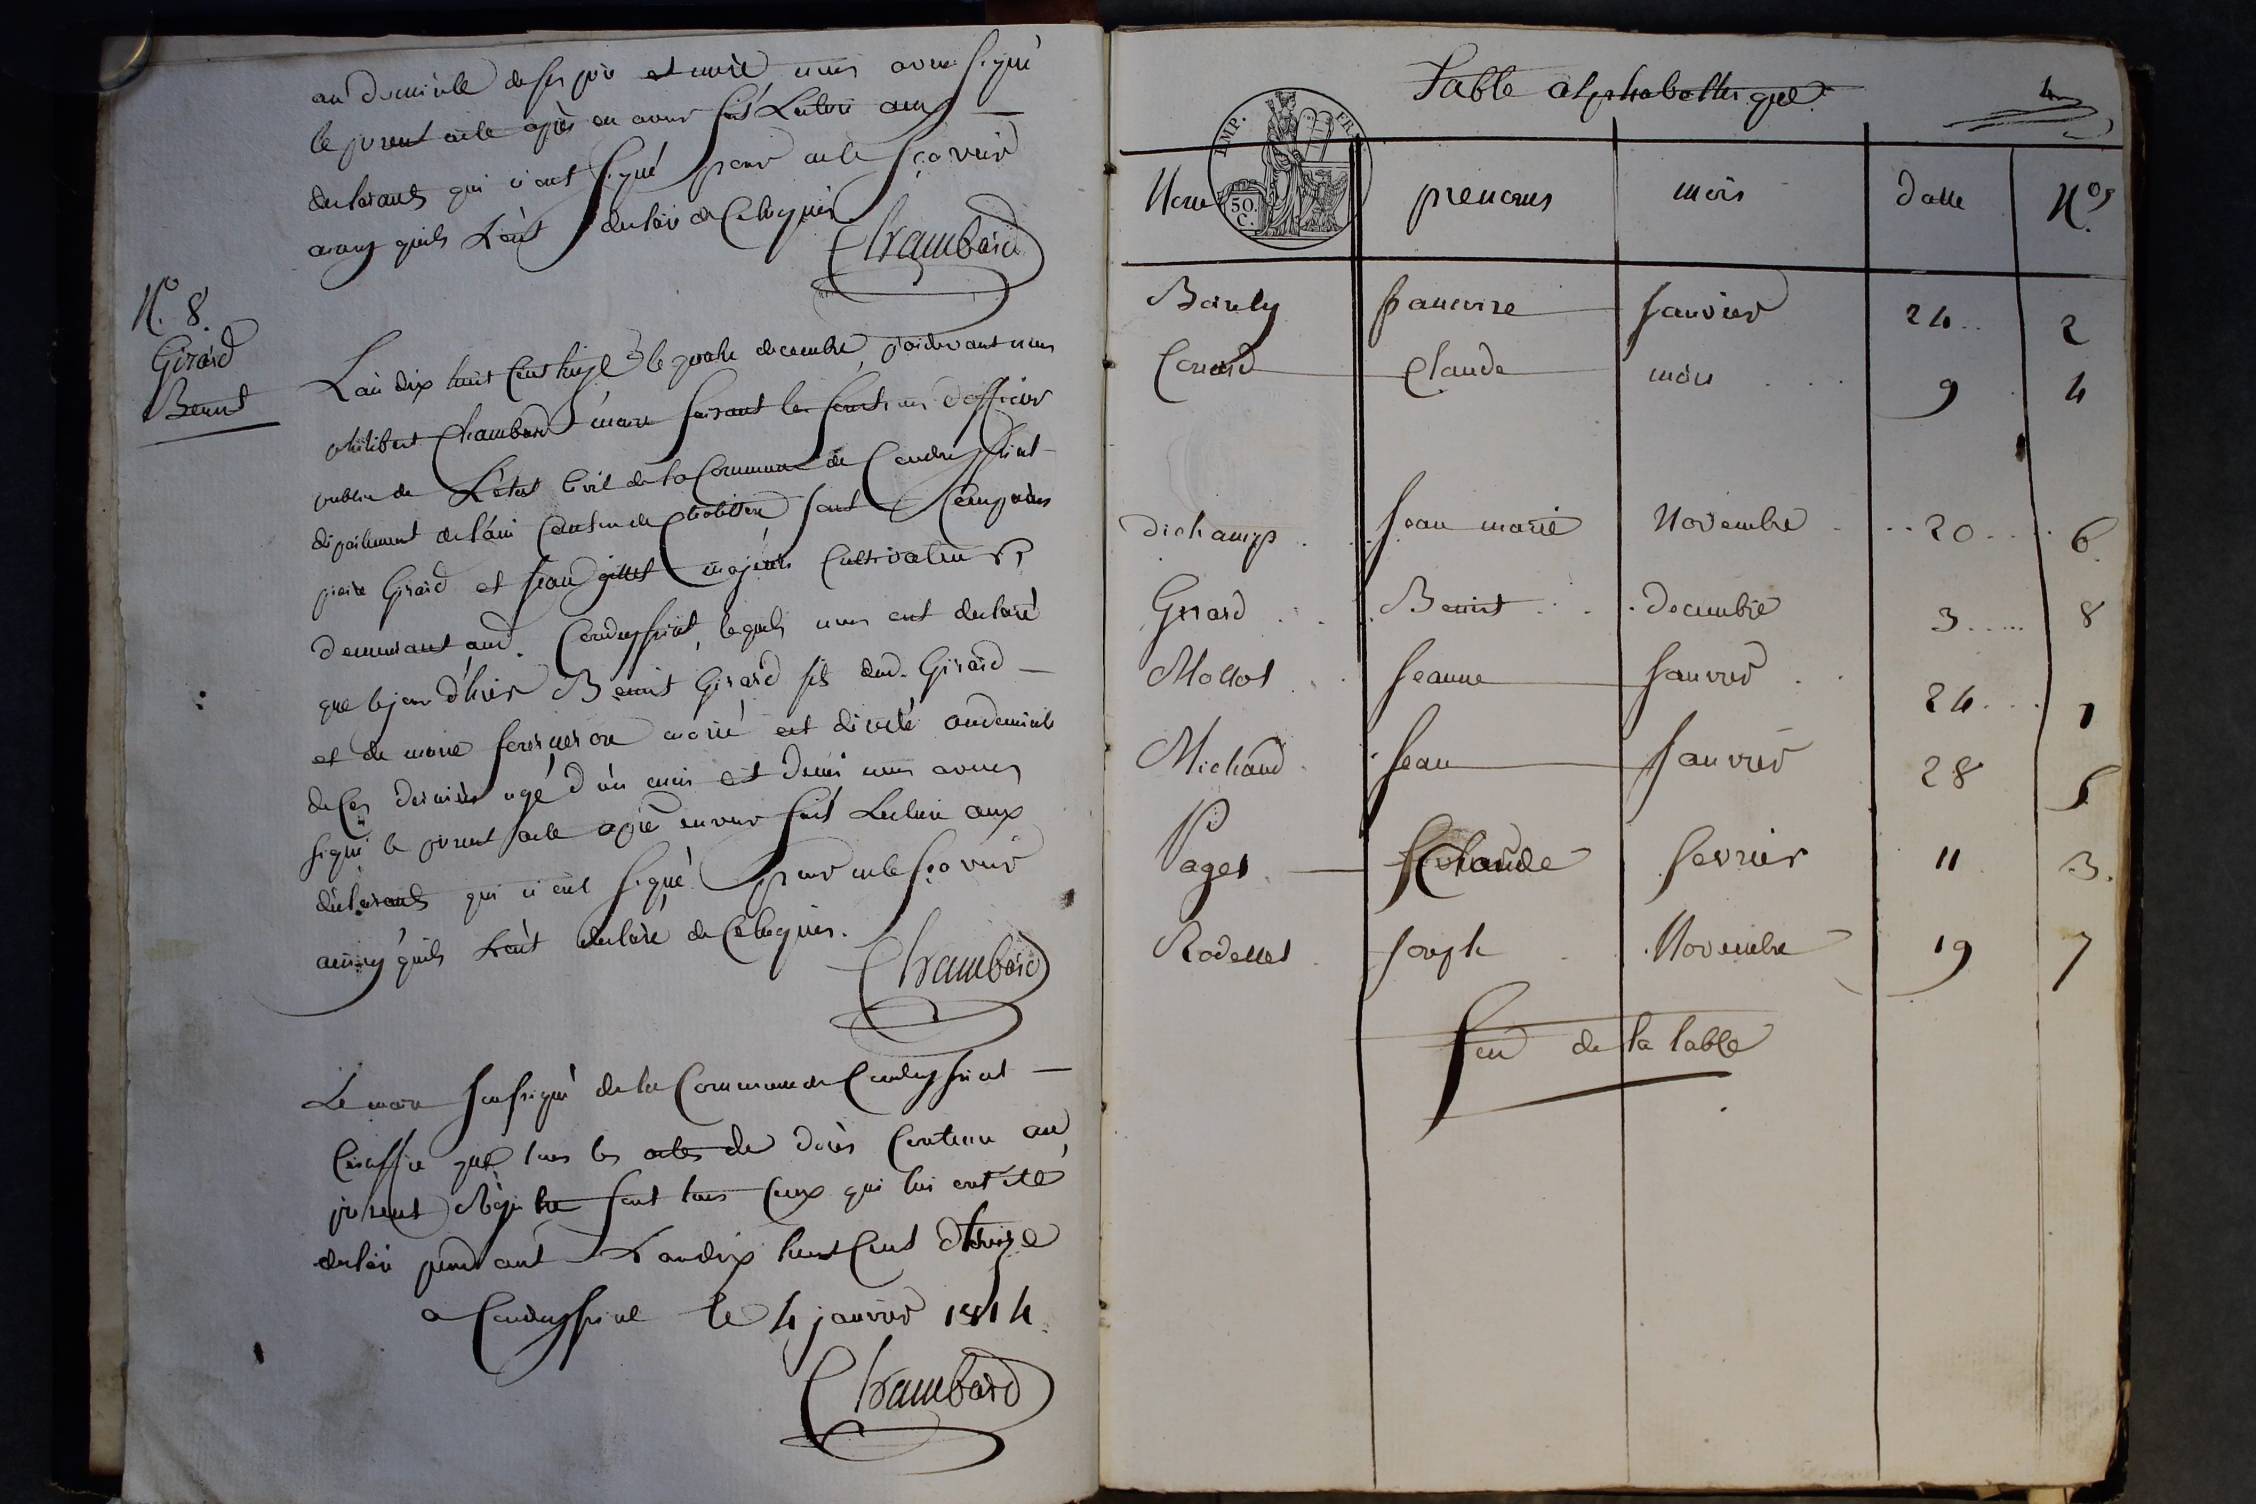 au domicile de ses père et mère nous avons signé
le présent acte après en avoir fait Lecture aux
declarants qui n'ont signé pour ne le sçavoir
ainsy quils L'ont declaré de Ce Requis.
Chambard
N.º 8.
Girard
Benoit
L'an dix huit Cent treize le quatre decembre, pardevant nous
philibert Chambard maire faisant les fonctions d'officier
public de L'etat Civil de la Commune de Condeyssiat
departement de l'ain Canton de Chatillon sont Comparus
pierre Girard et jean gillet majeurs Cultivateurs
demeurant aud. Condeyssiat, lequels nous ont declaré
que le jour d'hier Benoit Girard fils dud. Girard
et de marie mariés est decedé audomicile
de Ces derniers agé d'un mois et demi nous avons
signé le present acte après en avoir fait Lecture aux
déclarants qui n'ont signé pour ne le sçavoir
ainsy quils L'ont declaré de Ce Requis.
Chambard
Le maire soussigné de la Commune de Condeyssiat
Certiffie que tous les actes de décès Contenu au
présent Régistre sont tous Ceux qui lui ont été
declaré pendant L'an dix huit Cent treize
a Condeyssiat le 4 janvier 1814
Chambard
Table alphabettique
4
IMP. FR.
50. C.
Nom prenoms mois datte Nos
Bouly francoise janvier 24 2
Conard Claude mars 9 4
dichamp jean marie Novembre 20 6
Girard Benoit decembre 3 8
Mollot jeanne janvier 24 1
Michaud jean janvier 28 5
Pages Claude fevrier 11 3.
Rodellet joseph Novembre 19 7
fin de la table